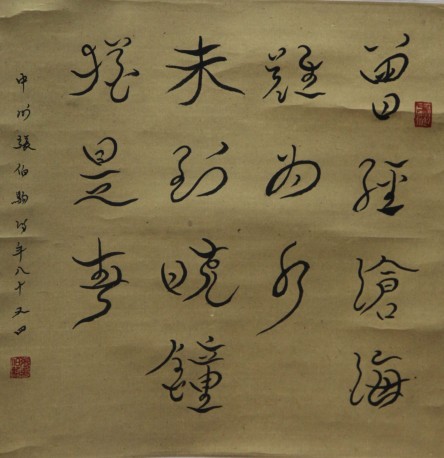 曾經滄海
難為水
未到曉鐘
猶是春
中州張伯駒時年八十又四